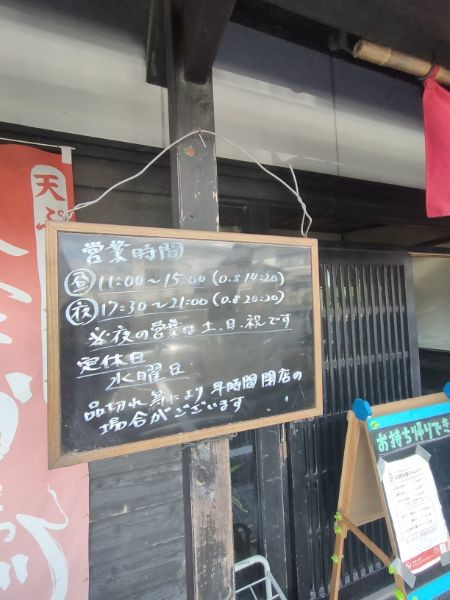 営業時間
昼 11:00〜15:00 (O.S 14:20)
夜 17:30〜21:00 (O.S 20:20)
※夜の営業は土.日.祝です
定休日
水曜日
品切れ等により早時間閉店の
場合がございます
天ぷ
お持ち帰りでき